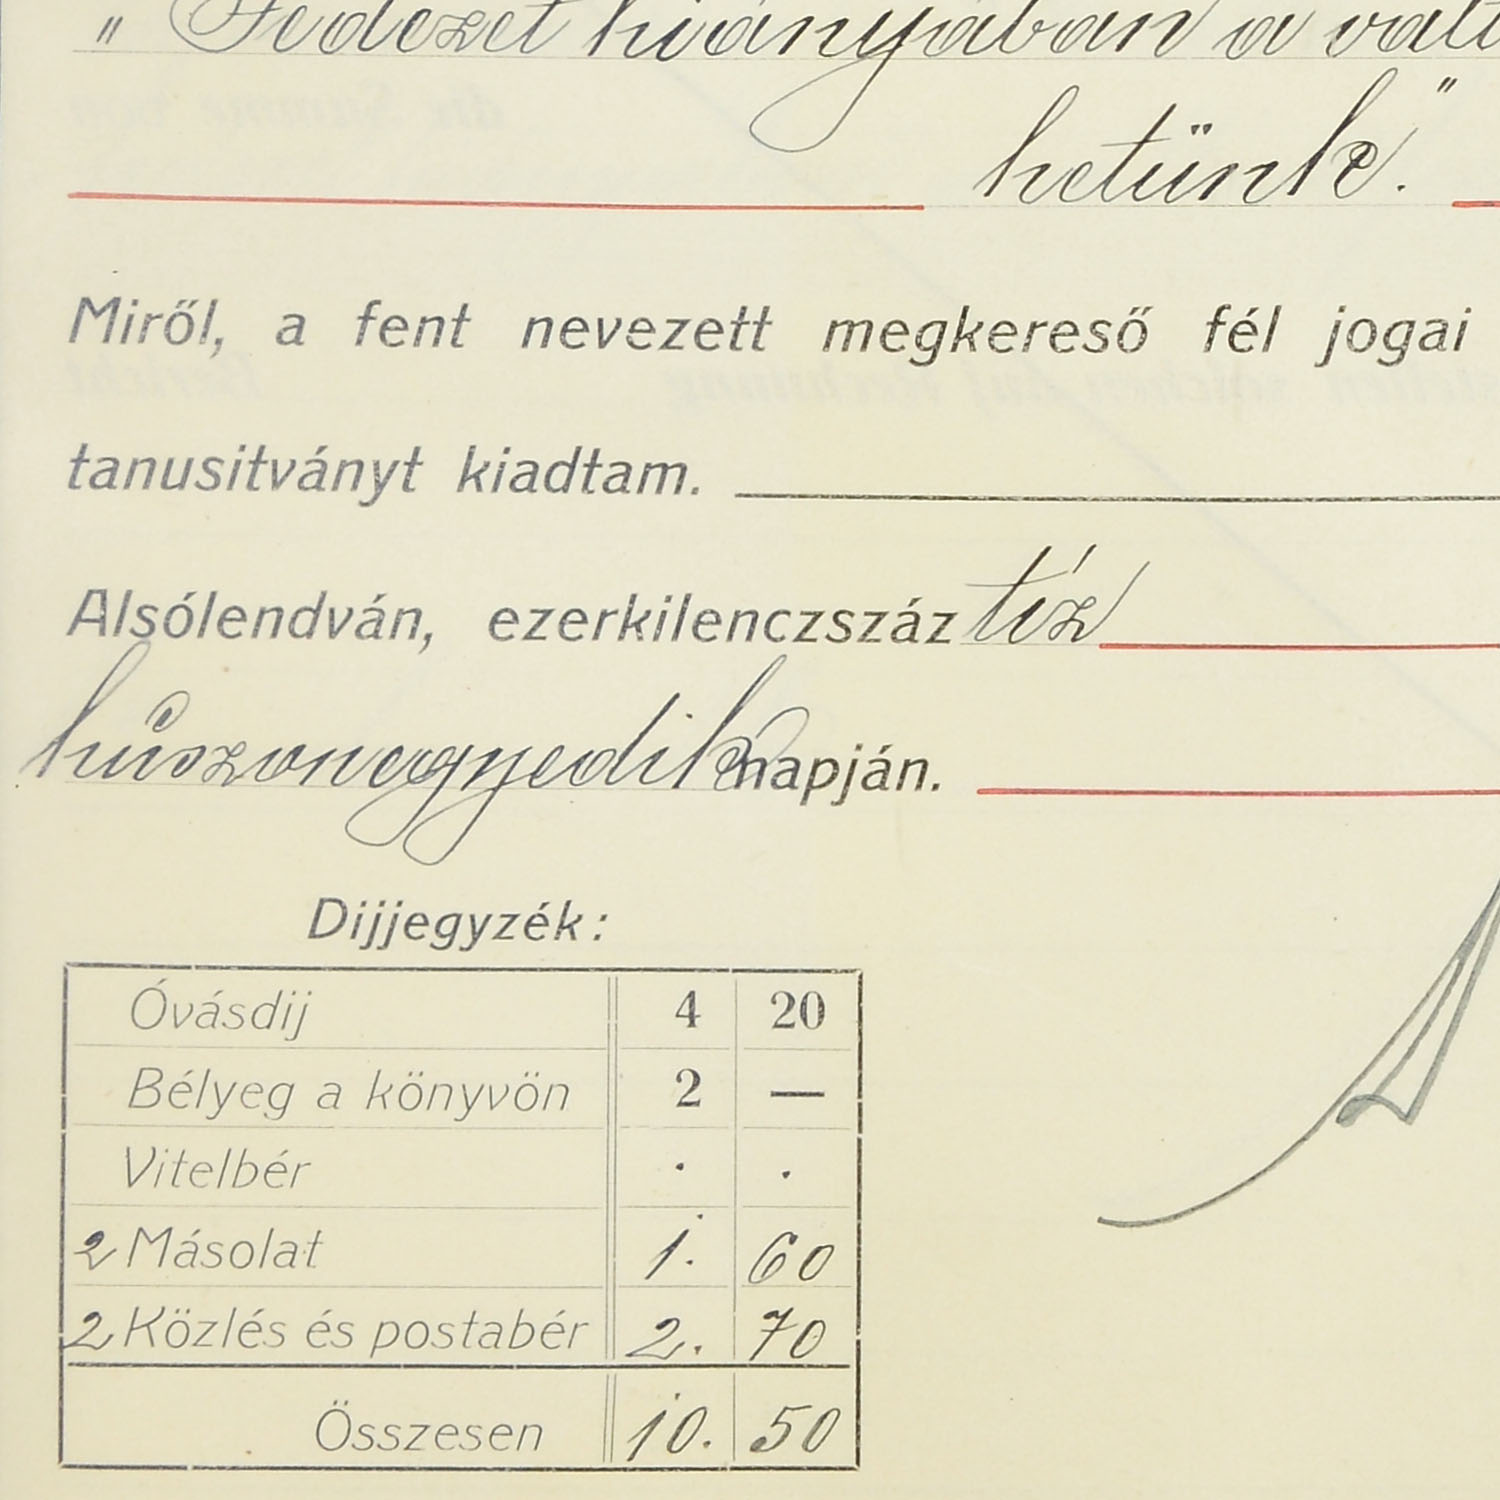 " Fedezet hiányában a vált
hetünk."
Miről, a fent nevezett megkereső fél jogai
tanusitványt kiadtam.
Alsólendván, ezerkilenczszáz tíz
húszonegyedik napján.
Dijjegyzék:
Óvásdij 4 20
Bélyeg a könyvön 2 —
Vitelbér . .
2 Másolat 1. 60
2 Közlés és postabér 2. 70
Összesen 10. 50